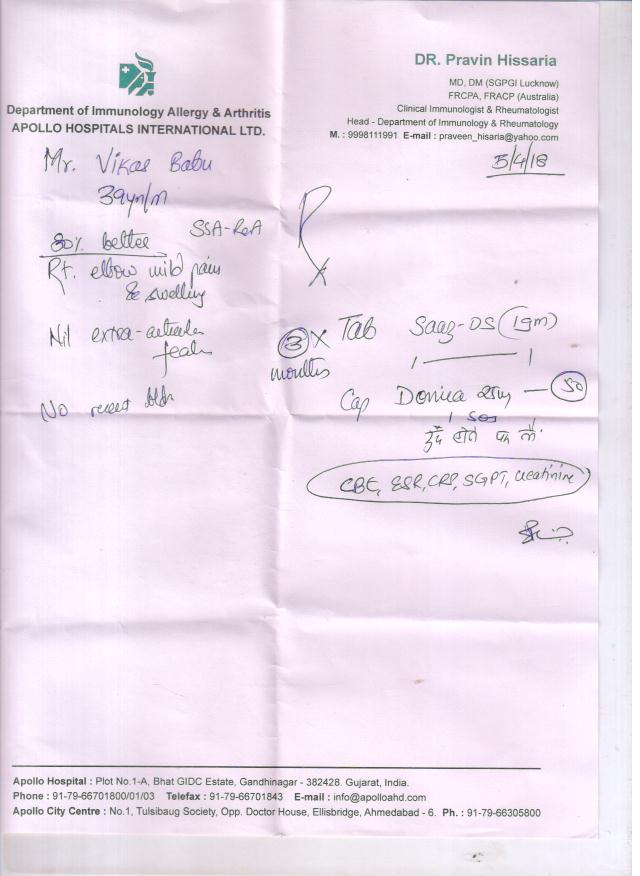 DR. Pravin Hissaria
MD, DM (SGPGI Lucknow)
FRCPA, FRACP (Australia)
Clinical Immunologist & Rheumatologist
Head - Department of Immunology & Rheumatology
M. : 9998111991 E-mail : praveen_hisaria@yahoo.com
Department of Immunology Allergy & Arthritis
APOLLO HOSPITALS INTERNATIONAL LTD.
5/4/18
Mr. Vikas Babu
39yr/m
SSA-ReA
80% better
Rt. elbow mild pain
& swelling
Nil extra-articular
No recent
Rx
3 X
months
Tab Saaz-DS (1gm)
1 — 1
Cap 25mg — 50
1 SOS
होने पर लें.
CBC, ESR, CRP, SGPT, Creatinine
Apollo Hospital : Plot No.1-A, Bhat GIDC Estate, Gandhinagar - 382428. Gujarat, India.
Phone : 91-79-66701800/01/03 Telefax : 91-79-66701843 E-mail : info@apolloahd.com
Apollo City Centre : No.1, Tulsibaug Society, Opp. Doctor House, Ellisbridge, Ahmedabad - 6. Ph. : 91-79-66305800